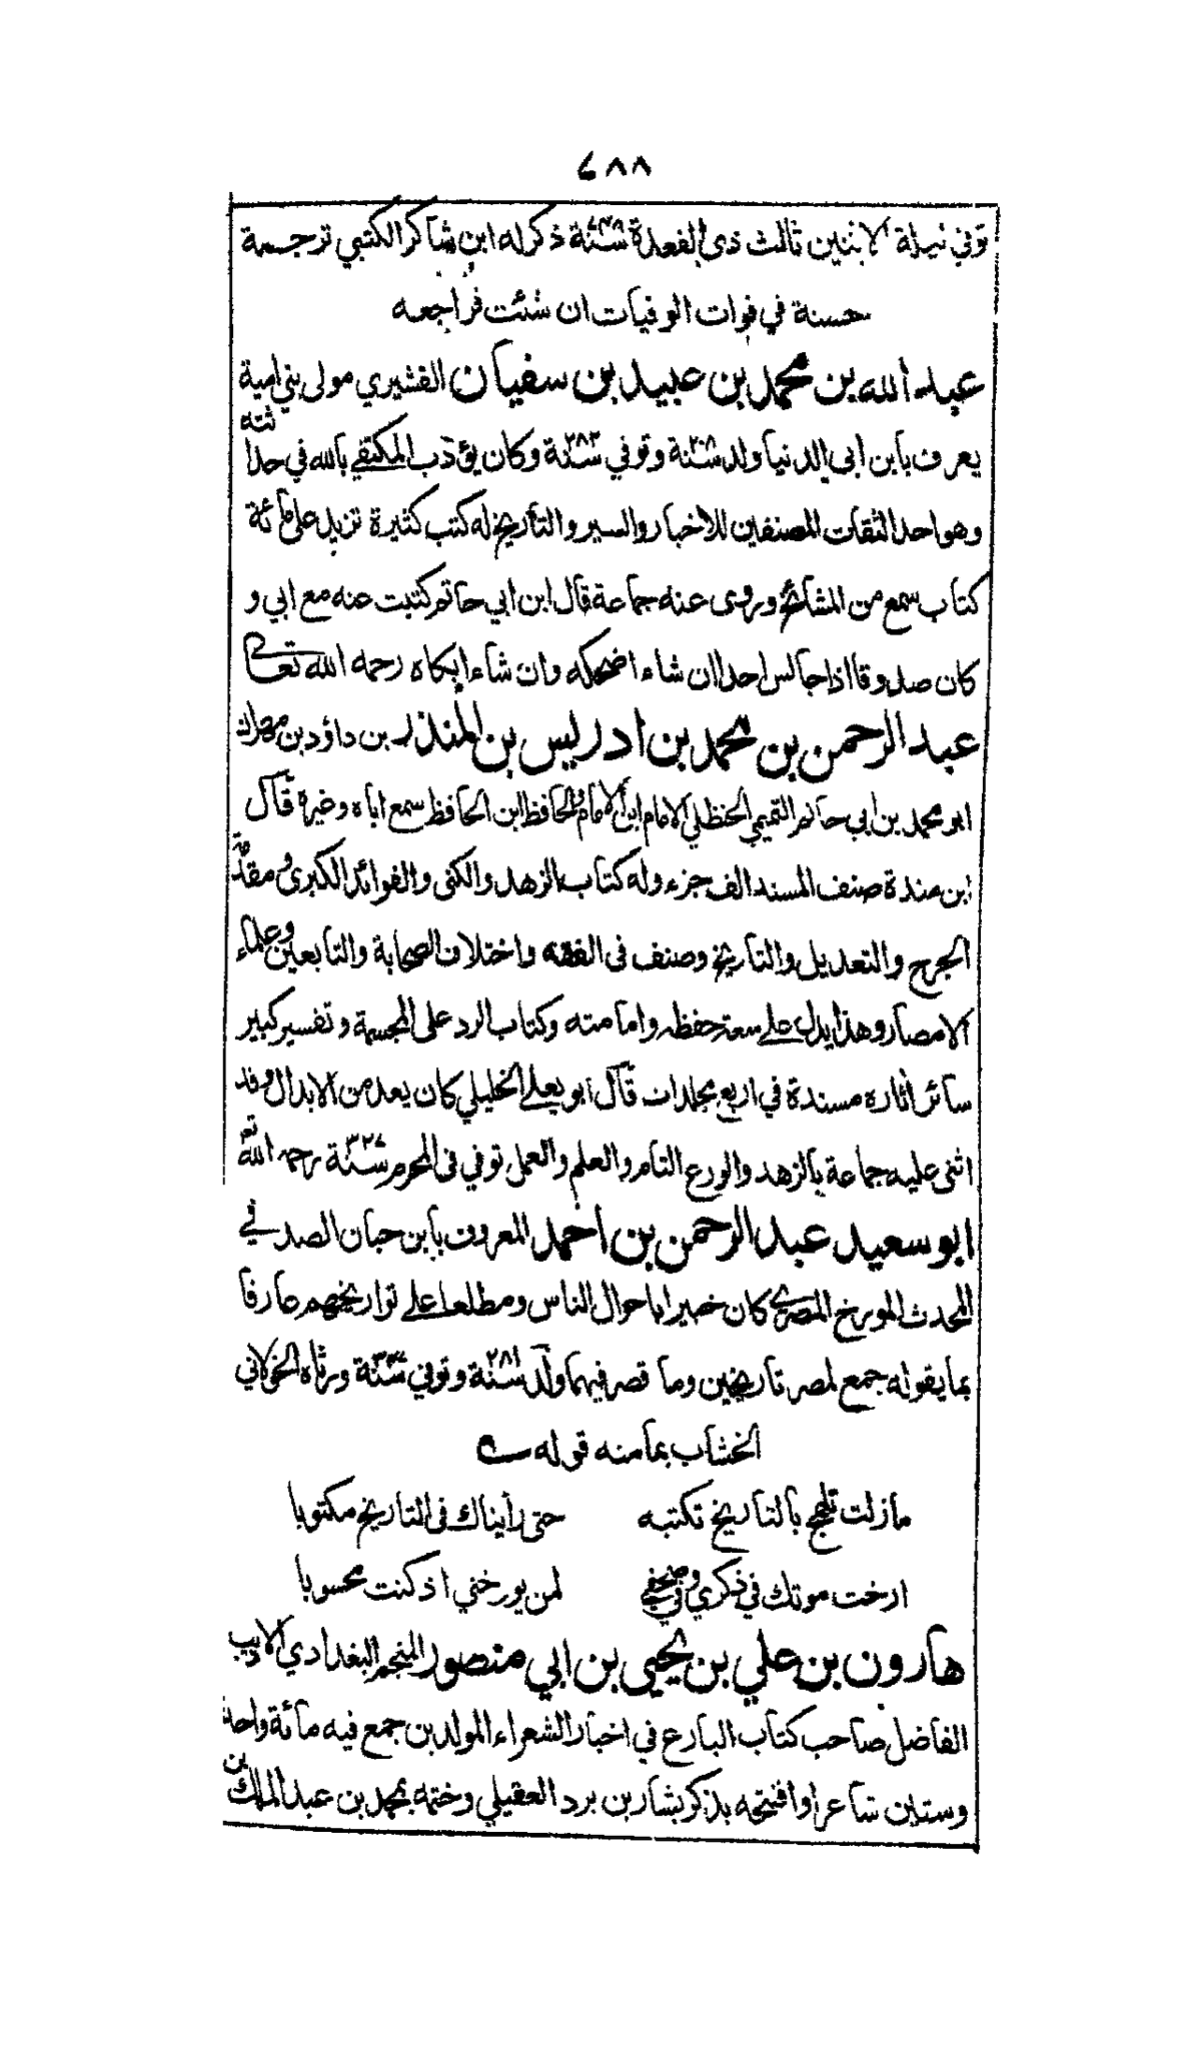 ٦٨٨
توفي ليلة الاثنين ثالث ذي القعدة سنة ٧٣٨ ذكر له ابن شاكر الكتبي ترجمة
حسنة في فوات الوفيات ان شئت فراجعه
عبد الله بن محمد بن عبيد بن سفيان القشيري مولى بني امية
يعرف بابن ابي الدنيا ولد سنة ٢٠٨ وتوفي سنة ٢٨٢ وكان يؤدب المكتفي بالله في حداثته
وهو احد الثقات المصنفين للاخبار والسير والتأريخ له كتب كثيرة تزيد على مائة
كتاب سمع من المشائخ وروى عنه جماعة قال ابن ابي حاتم كتبت عنه مع ابي و
كان صدوقا اذا جالس احدا ان شاء اضحكه وان شاء ابكاه رحمه الله تعالى
عبد الرحمن بن محمد بن ادريس بن المنذر بن داؤد بن مهران
ابو محمد بن ابي حاتم التميمي الحنظلي الامام ابن الامام والحافظ ابن الحافظ سمع اباه وغيره قال
ابن مندة صنف المسند الف جزء وله كتاب الزهد والكنى والفوائد الكبرى ومقدمة
الجرح والتعديل والتاريخ وصنف في الفقه واختلاف الصحابة والتابعين وعلماء
الامصار وهذا يدل على سعة حفظه وامامته وكتاب الرد على المجسمة وتفسير كبير
سائر اثاره مسندة في اربع مجلدات قال ابو يعلى الخليلي كان يعد من الابدال وقد
اثنى عليه جماعة بالزهد والورع التام والعلم والعمل توفي في المحرم سنة ٣٢٧ رحمه الله تع
ابو سعيد عبد الرحمن بن احمد المعروف بابن حبان الصدفي
المحدث المورخ المصري كان خبيرا باحوال الناس ومطلعا على تواريخهم عارفا
بما يقوله جمع لمصر تاريخين وما قصر فيهما ولد سنة ٢٨١ وتوفي سنة ورثاه الخولاني
الخشاب بما منه قوله
مازلت تلهج بالتاريخ تكتبه حتى رأيناك في التاريخ مكتوبا
ارخت موتك في ذكري وفي صحفي لمن يورخني اذ كنت محسوبا
هارون بن علي بن يحيى بن ابي منصور المنجم البغدادي الاديب
الفاضل صاحب كتاب البارع في اخبار الشعراء المولدين جمع فيه مائة واحد
وستين شاعرا وافتتحه بذكر بشار بن برد العقيلي وختمه بمحمد بن عبد الملك بن